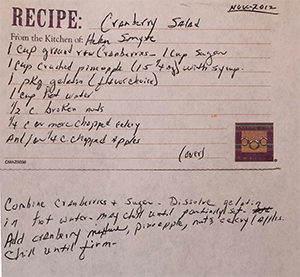 NOV-2012
RECIPE: Cranberry Salad
From the Kitchen of: Helen Smyte
1 cup ground raw Cranberries - 1 Cup Sugar
1 cup crushed pineapple (15 ¼ oz) with syrup.
1 pkg gelatin (flavor choice)
1 cup hot water
½ c broken nuts
¼ c or more chopped celery
And/or ¼ c. chopped apples
(over)
Combine Cranberries + Sugar - Dissolve gelatin
in hot water - may chill until partially set -
Add cranberry mixture, pineapple, nuts, celery/apples.
Chill until firm -